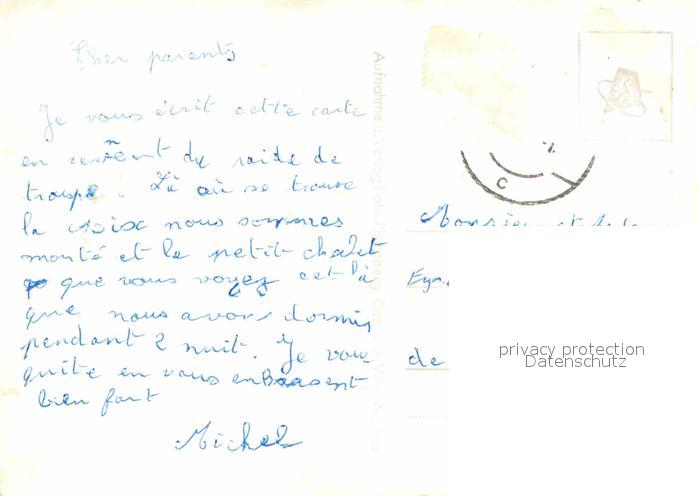 Cher parents
Je vous écrit cette carte
en revenent du raide de
troupe. Là où se trouve
la croix nous sommes
monté et le petit chalet
que vous voyez cet là
que nous avons dormis
pendant 2 nuit. Je vous
quite en vous enbrasent
bien fort
Michel
Monsieur et
de
privacy protection
Datenschutz
C